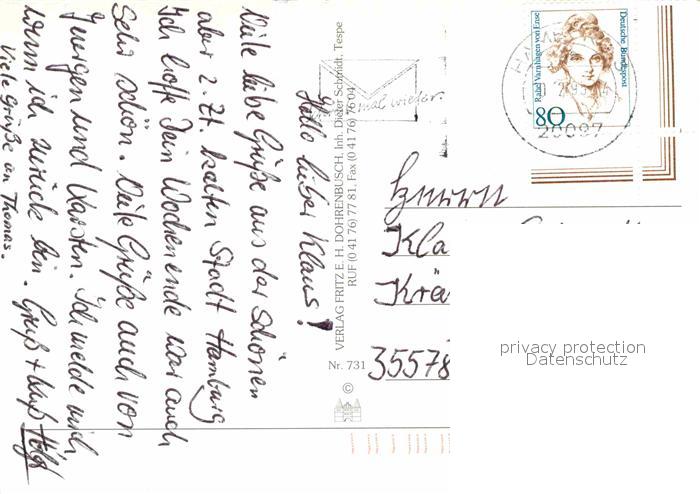 Hallo lieber Klaus!
Viele liebe Grüße aus der schönen
aber z. Zt. kalten Stadt Hamburg
Ich hoffe Dein Wochenende war auch
sehr schön. Viele Grüße auch von
Jürgen und Karsten. Ich melde mich,
wenn ich zurück bin. Gruß + Kuß
Viele Grüße an Thomas.
VERLAG FRITZ E. H. DOHRENBUSCH, Inh. Dieter Schmidt, Tespe
RUF (0 41 76) 77 81, Fax (0 41 76) 76 04
Nr. 731
©
mal wieder.
Deutsche Bundespost
Rahel Varnhagen von Ense
80
20097
Herrn
Kla
Krä
35578
privacy protection
Datenschutz